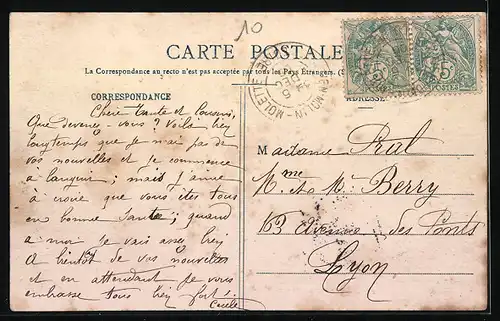 10
CARTE POSTALE
La Correspondance au recto n'est pas acceptée par tous les Pays Étrangers. (S
CORRESPONDANCE
ADRESSE
MOLETTE
5
5
POSTES
Chère Tante et Cousins,
Que devenez-vous? Voilà bien
longtemps que je n'ai pas de
vos nouvelles et je commence
à languir; mais j'aime
à croire que vous êtes tous
en bonne santé; quand
a moi je vais assez bien
A bientôt de vos nouvelles
et en attendant je vous
embrasse tous bien fort.
Cécile
Madame Pral
Mme et Mr Berry
163 Avenue des Ponts
Lyon